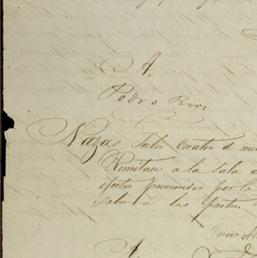 A.
Pedro Rios
Nazas Julio cuatro de mil
Remitase a la Sala
efectos prevenidos por la
saber à las partes
A